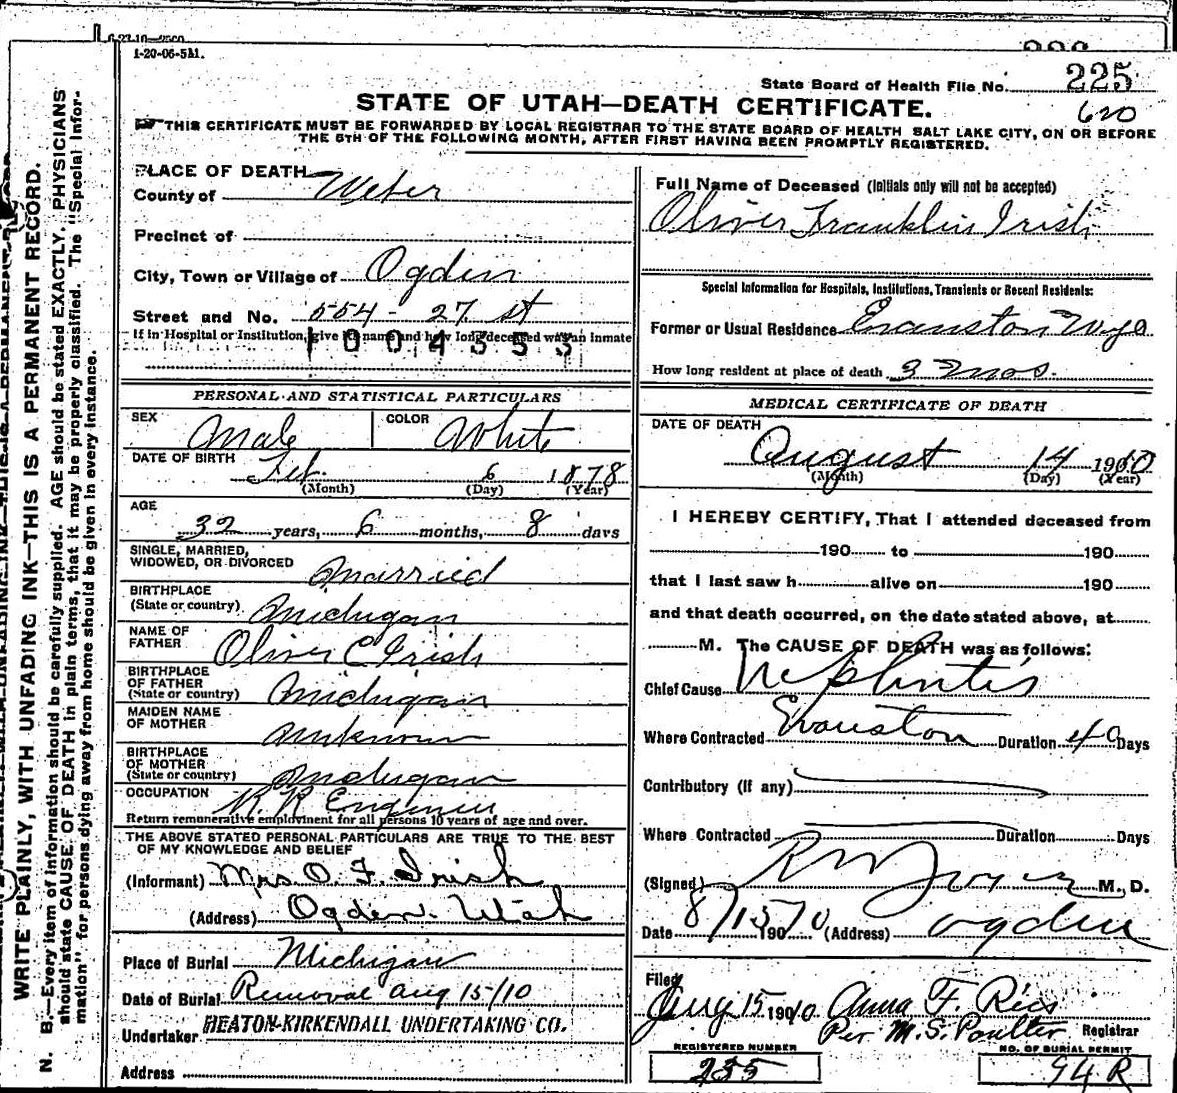 1-20-06-5M.
State Board of Health File No. 225
620
STATE OF UTAH—DEATH CERTIFICATE.
THIS CERTIFICATE MUST BE FORWARDED BY LOCAL REGISTRAR TO THE STATE BOARD OF HEALTH SALT LAKE CITY, ON OR BEFORE
THE 5TH OF THE FOLLOWING MONTH, AFTER FIRST HAVING BEEN PROMPTLY REGISTERED.
WRITE PLAINLY, WITH UNFADING INK—THIS IS A PERMANENT RECORD.
N. B.—Every item of information should be carefully supplied. AGE should be stated EXACTLY. PHYSICIANS
should state CAUSE OF DEATH in plain terms, that it may be properly classified. The "Special Infor-
mation" for persons dying away from home should be given in every instance.
PLACE OF DEATH
County of Weber
Precinct of
City, Town or Village of Ogden
Street and No. 554 - 27 st
If in Hospital or Institution, give its name and how long deceased was an inmate
1004353
PERSONAL AND STATISTICAL PARTICULARS
SEX Male COLOR White
DATE OF BIRTH Feb. 6 1878
(Month) (Day) (Year)
AGE
32 years, 6 months, 8 days
SINGLE, MARRIED,
WIDOWED, OR DIVORCED Married
BIRTHPLACE
(State or country) Michigan
NAME OF
FATHER Oliver C Irish
BIRTHPLACE
OF FATHER
(State or country) Michigan
MAIDEN NAME
OF MOTHER Unknown
BIRTHPLACE
OF MOTHER
(State or country) Michigan
OCCUPATION R. R Engineer
Return remunerative employment for all persons 10 years of age and over.
THE ABOVE STATED PERSONAL PARTICULARS ARE TRUE TO THE BEST
OF MY KNOWLEDGE AND BELIEF
(Informant) Mrs O. F. Irish
(Address) Ogden Utah
Place of Burial Michigan
Date of Burial Removal Aug 15/10
Undertaker HEATON-KIRKENDALL UNDERTAKING CO.
Address
Full Name of Deceased (Initials only will not be accepted)
Oliver Franklin Irish
Special Information for Hospitals, Institutions, Transients or Recent Residents:
Former or Usual Residence Evanston Wyo
How long resident at place of death 3 mos.
MEDICAL CERTIFICATE OF DEATH
DATE OF DEATH
August 14 1910
(Month) (Day) (Year)
I HEREBY CERTIFY, That I attended deceased from
190 to 190
that I last saw h alive on 190
and that death occurred, on the date stated above, at
M. The CAUSE OF DEATH was as follows:
Chief Cause Nephritis
Where Contracted Evanston Duration 40 Days
Contributory (If any)
Where Contracted Duration Days
(Signed) M. D.
Date 8/15 1910 (Address) Ogden
Filed
Aug 15 1910 Anna F. Rees
Per M. S. Poulter Registrar
REGISTERED NUMBER NO. OF BURIAL PERMIT
235 94 R